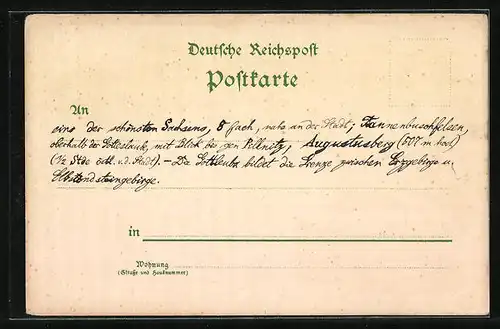 Deutsche Reichspost
Postkarte
An
eins der schönsten Sachsens, 8 fach, nahe an der Stadt; Tannenbuschfelsen,
oberhalb der Gottleuba, mit Blick bis gen Pillnitz, Augustusberg (507 m hoch)
(½ Stde östl. v. d. Stadt). — Die Gottleuba bildet die Grenze zwischen Erzgebirge u.
Elbsandsteingebirge.
in
Wohnung
(Straße und Hausnummer)